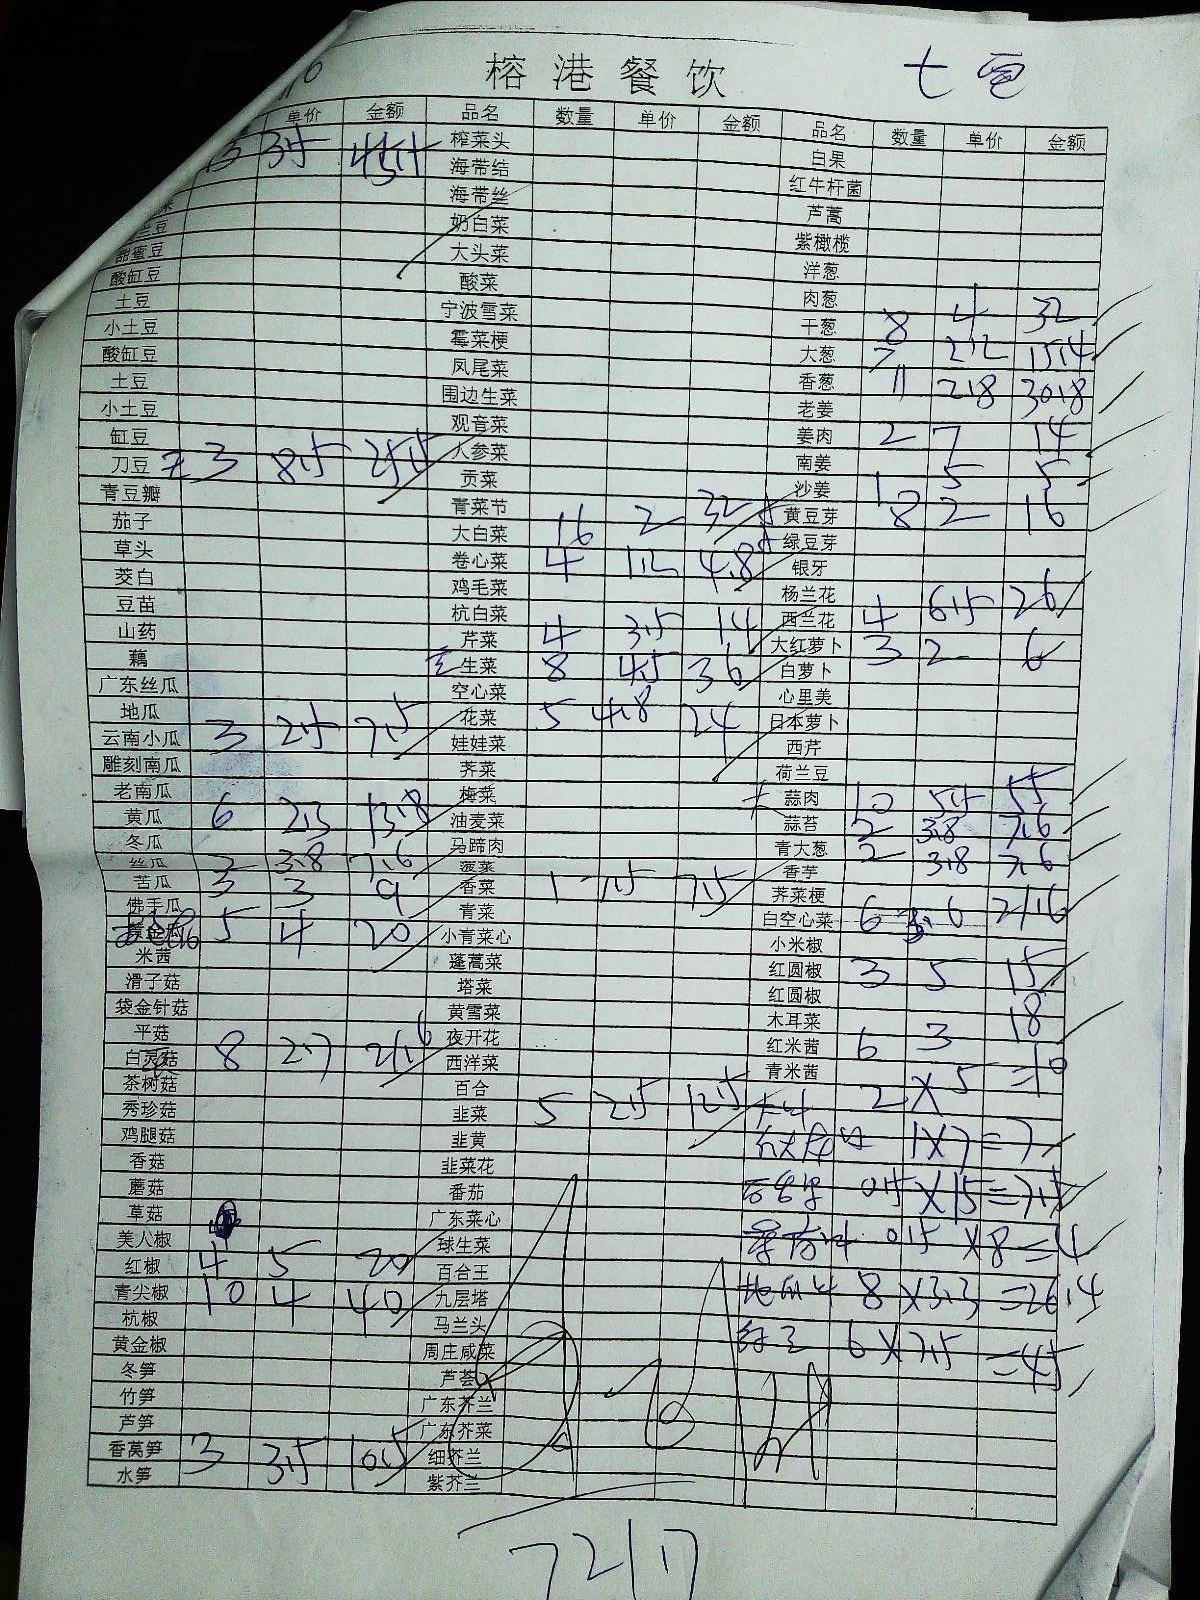 榕港餐饮
单价 金额 品名 数量 单价 金额 品名 数量 单价 金额
3.5 45.5 榨菜头 白果
海带结 红牛杆菌
海带丝 芦蒿
奶白菜 紫橄榄
甜蜜豆 大头菜 洋葱
酸缸豆 酸菜 肉葱
土豆 宁波雪菜 干葱 8 4 32
小土豆 霉菜梗 大葱 7 2.2 15.4
酸缸豆 凤尾菜 香葱 11 2.8 30.8
土豆 围边生菜 老姜
小土豆 观音菜 姜肉 2 7 14
缸豆 人参菜 南姜
刀豆 3 8.5 25.5 贡菜 沙姜 1 5 5
青豆瓣 青菜节 黄豆芽 8 2 16
茄子 大白菜 16 2 32 绿豆芽
草头 卷心菜 4 1.2 4.8 银牙
茭白 鸡毛菜 杨兰花
豆苗 杭白菜 西兰花 4 6.5 26
山药 芹菜 4 3.5 14 大红萝卜 3 2 6
藕 生菜 8 4.5 36 白萝卜
广东丝瓜 空心菜 心里美
地瓜 花菜 5 4.8 24 日本萝卜
云南小瓜 3 2.5 7.5 娃娃菜 西芹
雕刻南瓜 荠菜 荷兰豆
老南瓜 梅菜 蒜肉 10 5.5 55
黄瓜 6 2.3 13.8 油麦菜 蒜苔 2 3.8 7.6
冬瓜 马蹄肉 青大葱 2 3.8 7.6
丝瓜 2 3.8 7.6 菠菜 香芋
苦瓜 3 3 9 香菜 1 7.5 7.5 荠菜梗
佛手瓜 青菜 白空心菜 6 3.6 21.6
5 4 20 小青菜心 小米椒
米茜 蓬蒿菜 红圆椒 3 5 15
滑子菇 塔菜 红圆椒
袋金针菇 黄雪菜 木耳菜 18
平菇 夜开花 红米茜 6 3
白灵菇 8 2.7 21.6 西洋菜 青米茜
茶树菇 百合 2×5=10
秀珍菇 韭菜 5 2.5 12.5
鸡腿菇 韭黄 1×7=7
香菇 韭菜花
蘑菇 番茄 0.5×15=7.5
草菇 广东菜心
美人椒 球生菜 0.5×8=4
红椒 4 5 20 百合王
青尖椒 10 4 40 九层塔 8×3.3=26.4
杭椒 马兰头
黄金椒 周庄咸菜 6×7.5=45
冬笋 芦荟
竹笋 广东芥兰
芦笋 广东芥菜
香莴笋 3 3.5 10.5 细芥兰
水笋 紫芥兰
721.7